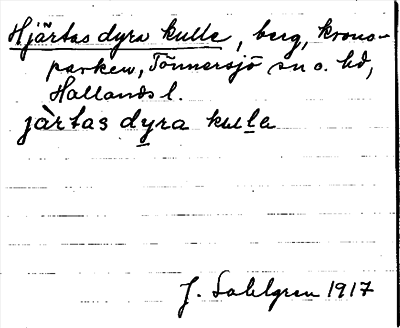 Hjärtas dyra kulle, berg, krono-
parken, Tönnersjö sn o. hd,
Hallands l.
jàrtas dyra kulla
J. Sahlgren 1917